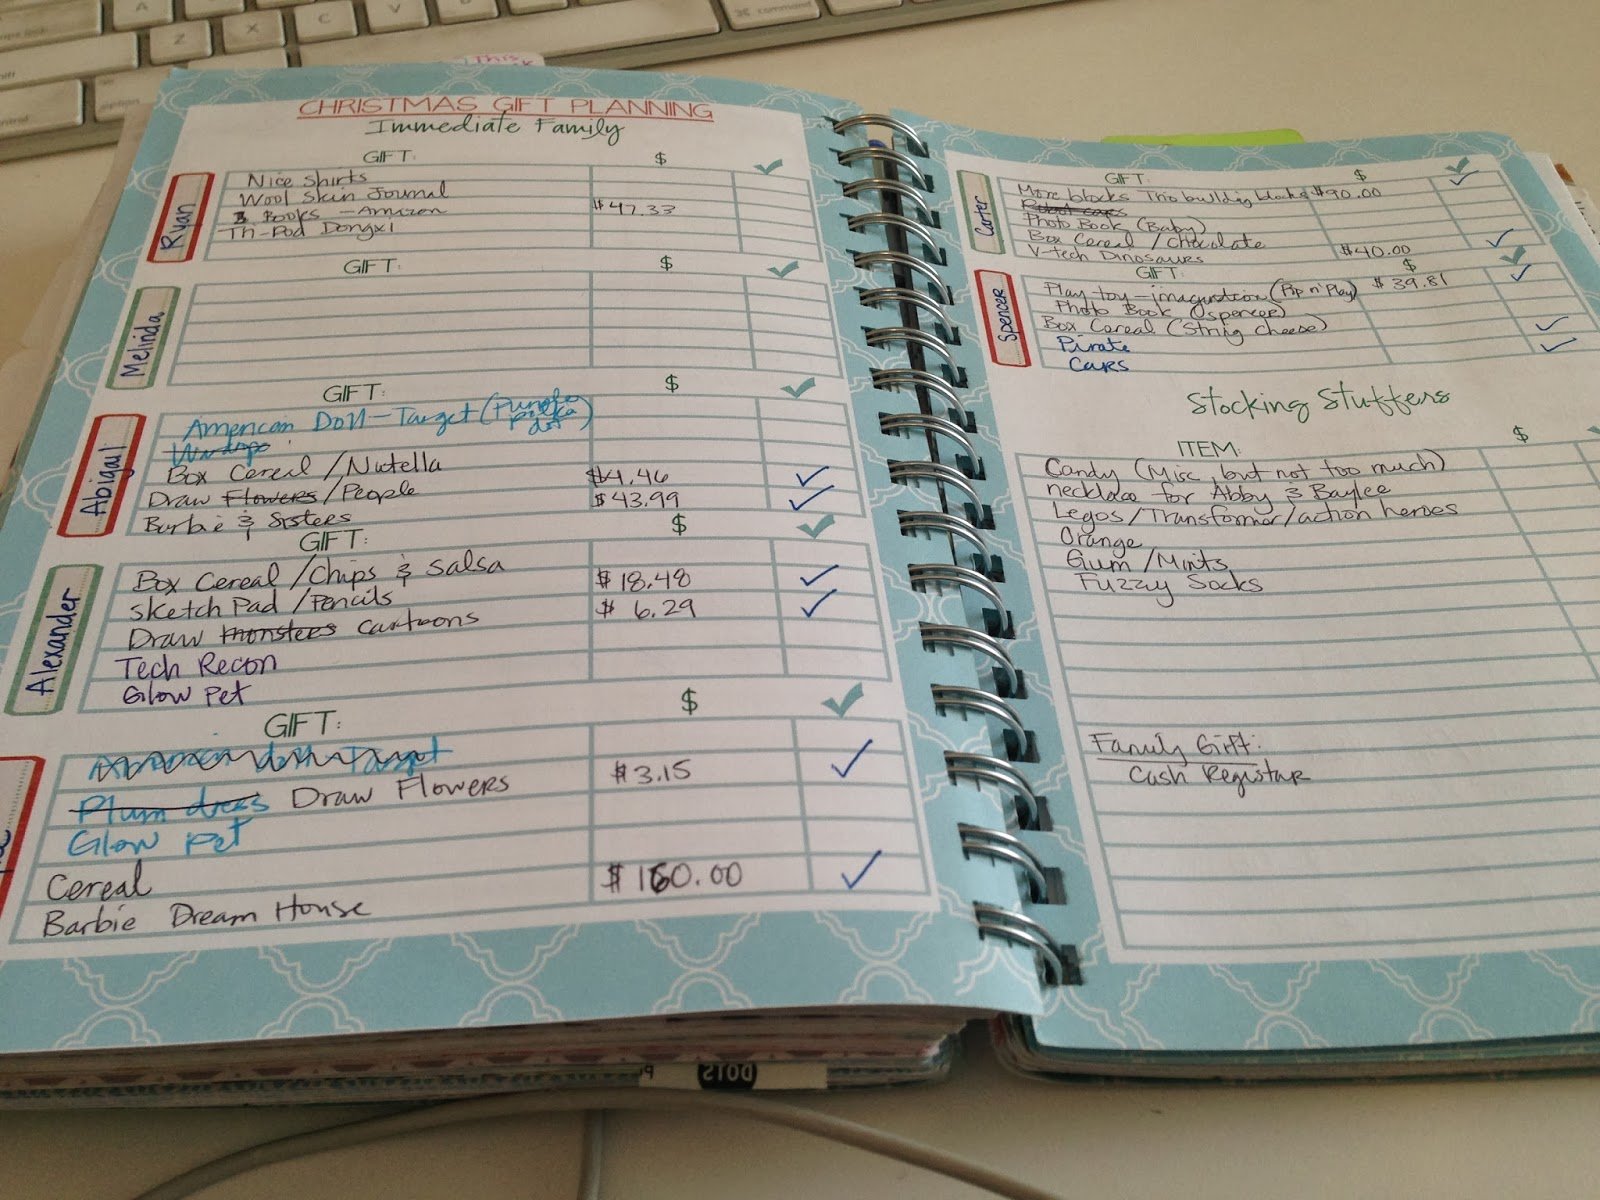 Z X C V B N M
⌘ command
option
CHRISTMAS GIFT PLANNING
Immediate Family
GIFT: $
Ryan
Nice Shirts
Wool Skin Journal
3 Books - Amazon $47.33
Th-Pod Dongxi
GIFT: $
Melinda
GIFT: $
Abigail
American Doll-Target (Purple polka dot)
Box Cereal / Nutella
Draw Flowers / People $4.46
Burbie & Sisters $43.99
GIFT: $
Alexander
Box Cereal / Chips & Salsa
Sketch Pad / Pencils $18.48
Draw monsters cartoons $ 6.29
Tech Recon
Glow Pet
GIFT: $
American doll Target
Plum dress Draw Flowers $3.15
Glow pet
Cereal
Barbie Dream House $160.00
GIFT: $
Carter
More blocks Trio building blocks $90.00
Photo Book (Baby)
Box Cereal / Chocolate
V-tech Dinosaurs $40.00
GIFT: $
Spencer
Play toy - (Pip n' Play) $39.81
Photo Book (Spencer)
Box Cereal (String cheese)
Pirate
Cars
Stocking Stuffers
ITEM: $
Candy (Misc, but not too much)
necklace for Abby & Baylee
Legos / Transformer / action heroes
Orange
Gum / Mints
Fuzzy Socks
Family Gift:
Cash Registar
DOTS